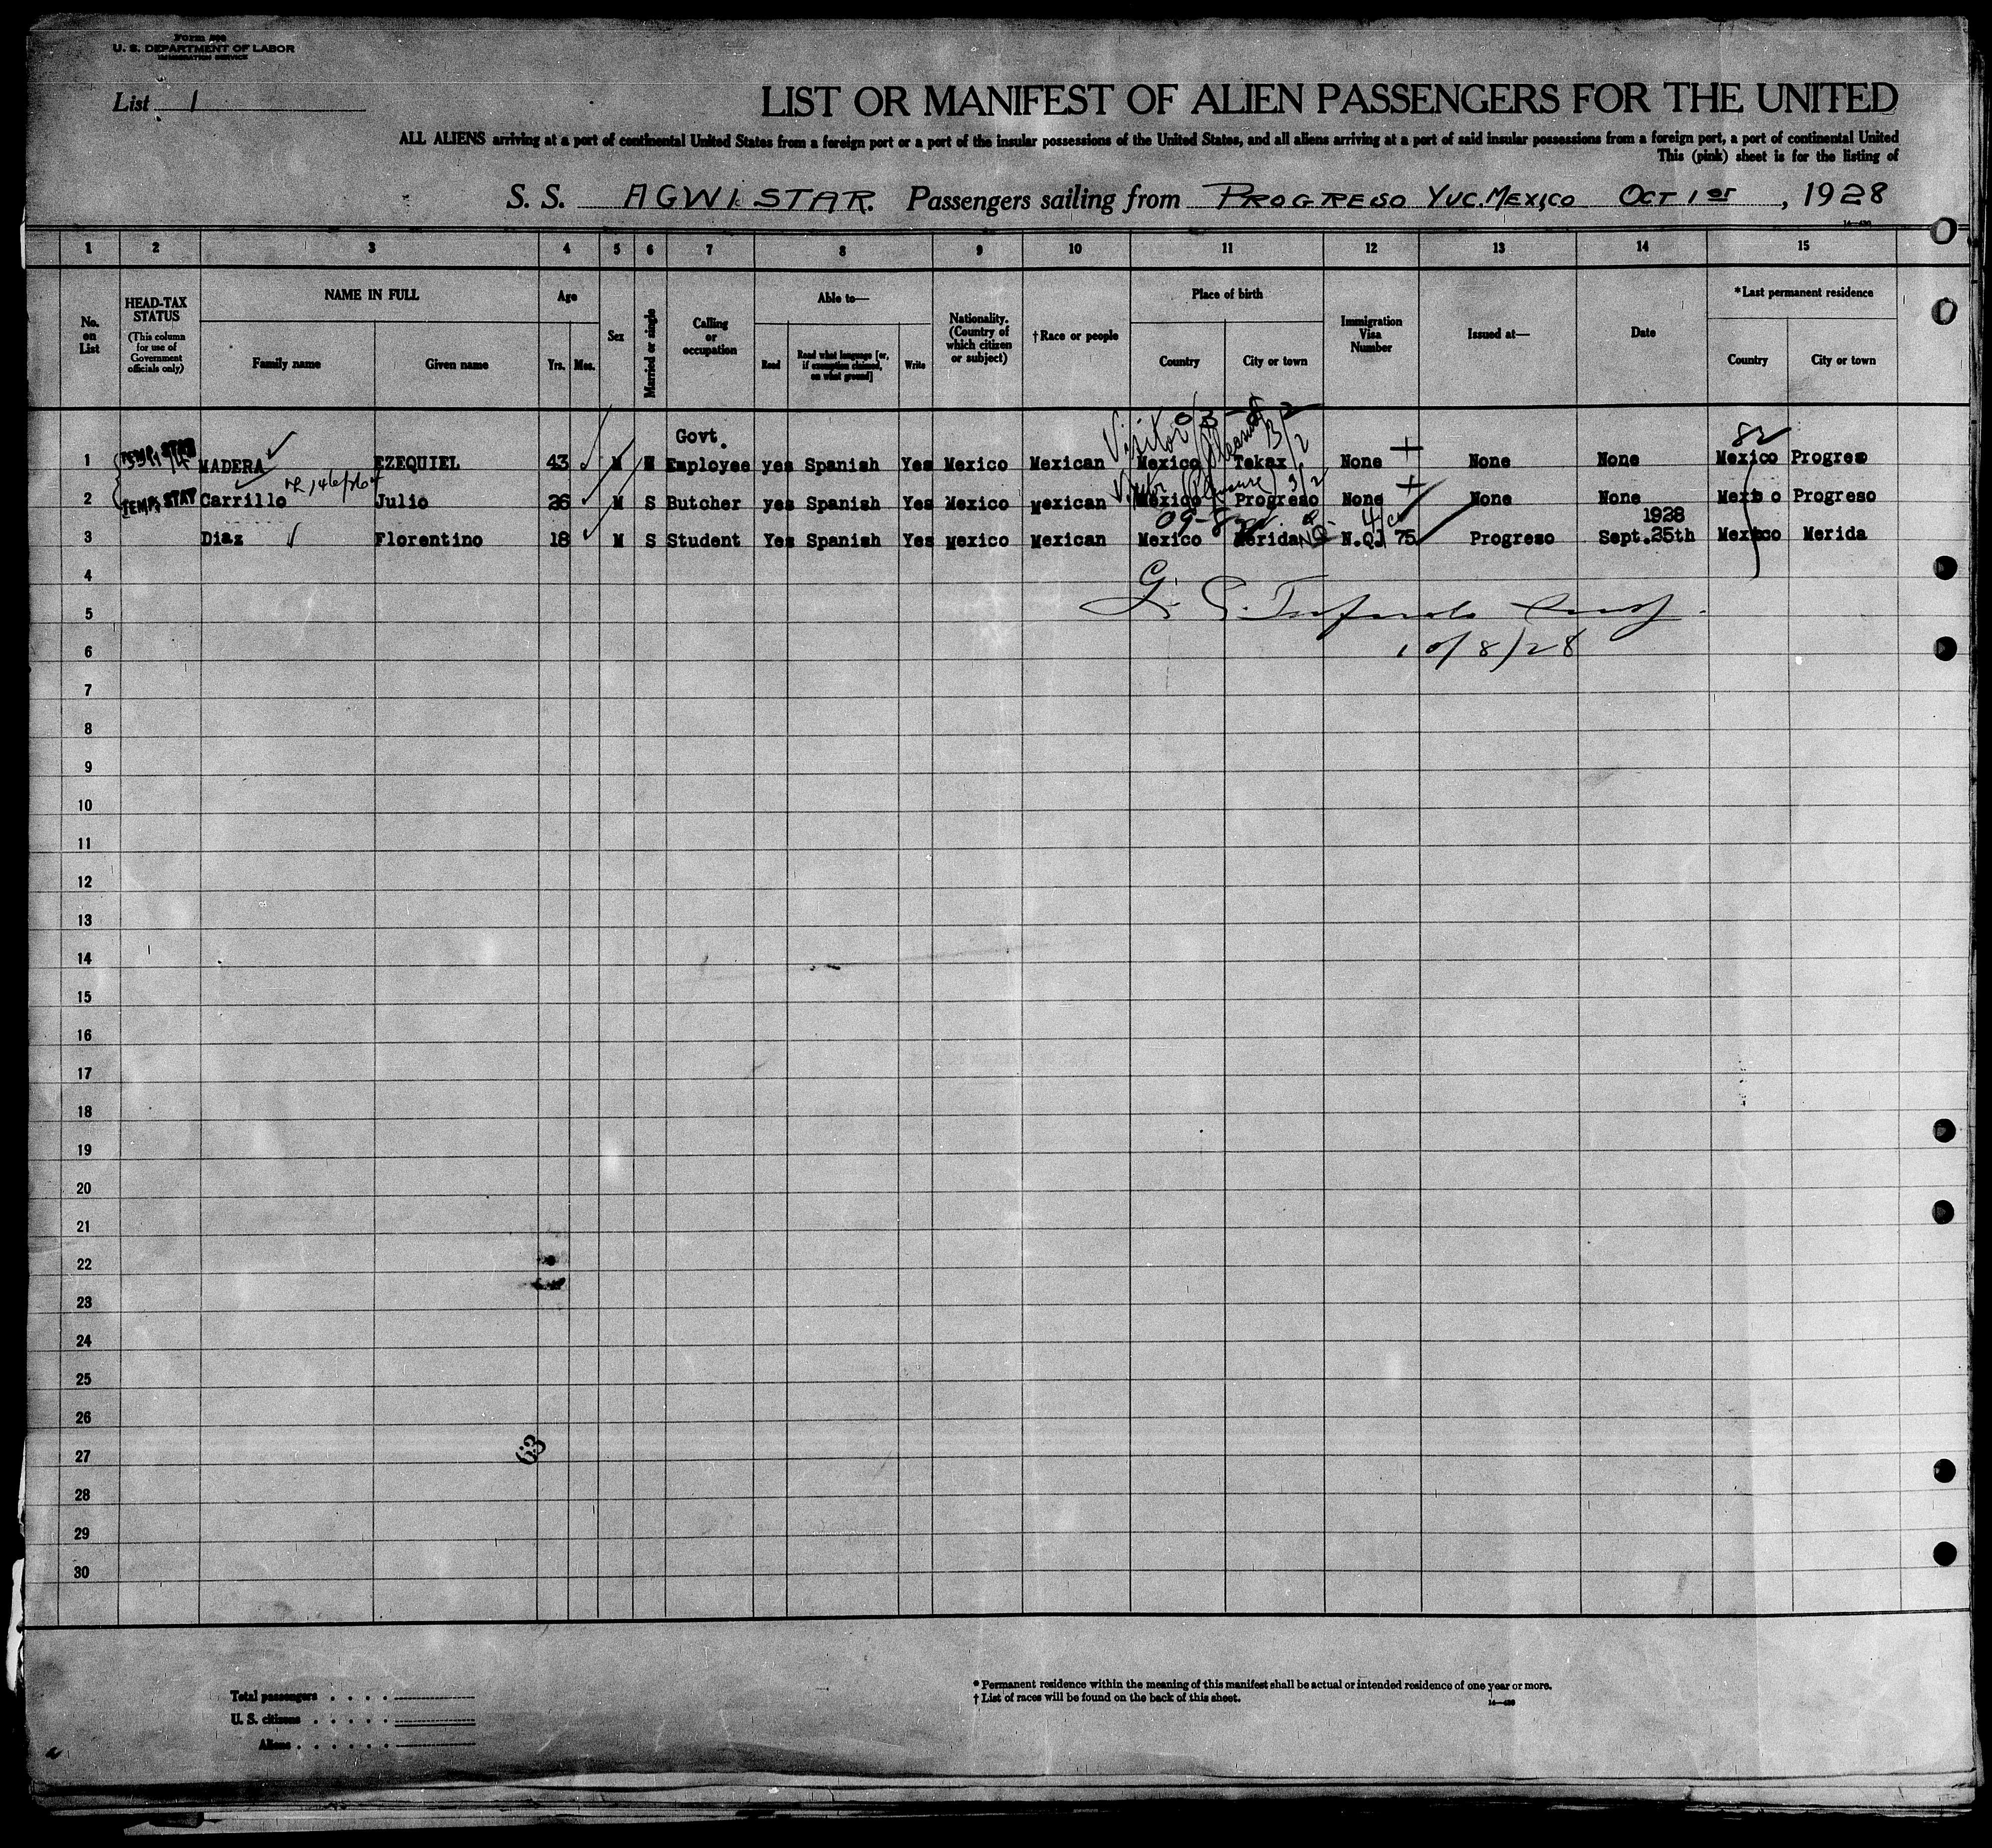 Form 500
U. S. DEPARTMENT OF LABOR
IMMIGRATION SERVICE
List 1
LIST OR MANIFEST OF ALIEN PASSENGERS FOR THE UNITED
ALL ALIENS arriving at a port of continental United States from a foreign port or a port of the insular possessions of the United States, and all aliens arriving at a port of said insular possessions from a foreign port, a port of continental United
This (pink) sheet is for the listing of
S. S. AGWISTAR. Passengers sailing from PROGRESO YUC. MEXICO OCT 1st, 1928
1 2 3 4 5 6 7 8 9 10 11 12 13 14 15
No. on List
HEAD-TAX STATUS
(This column for use of Government officials only)
NAME IN FULL
Family name Given name
Age
Yrs. Mos.
Sex
Married or single
Calling or occupation
Able to—
Read
Read what language [or, if exemption claimed, on what ground]
Write
Nationality. (Country of which citizen or subject)
†Race or people
Place of birth
Country City or town
Immigration Visa Number
Issued at—
Date
*Last permanent residence
Country City or town
Visitor 03-8 2 82
1 TEMP. STAY MADERA EZEQUIEL 43 M M Govt. Employee yes Spanish Yes Mexico Mexican Mexico Tekax 3/2 None None None Mexico Progreso
2 TEMP. STAY Carrillo Julio 26 M S Butcher yes Spanish Yes Mexico Mexican Mexico (Pleasure) Progreso 3/2 None None None Mexico Progreso
09-8
3 Diaz Florentino 18 M S Student Yes Spanish Yes mexico Mexican Mexico Merida N.Q. 75 Progreso 1928 Sept. 25th Mexico Merida
4
5
6 10/8/28
7
8
9
10
11
12
13
14
15
16
17
18
19
20
21
22
23
24
25
26
27 63
28
29
30
Total passengers
U. S. citizens
Aliens
* Permanent residence within the meaning of this manifest shall be actual or intended residence of one year or more.
† List of races will be found on the back of this sheet.